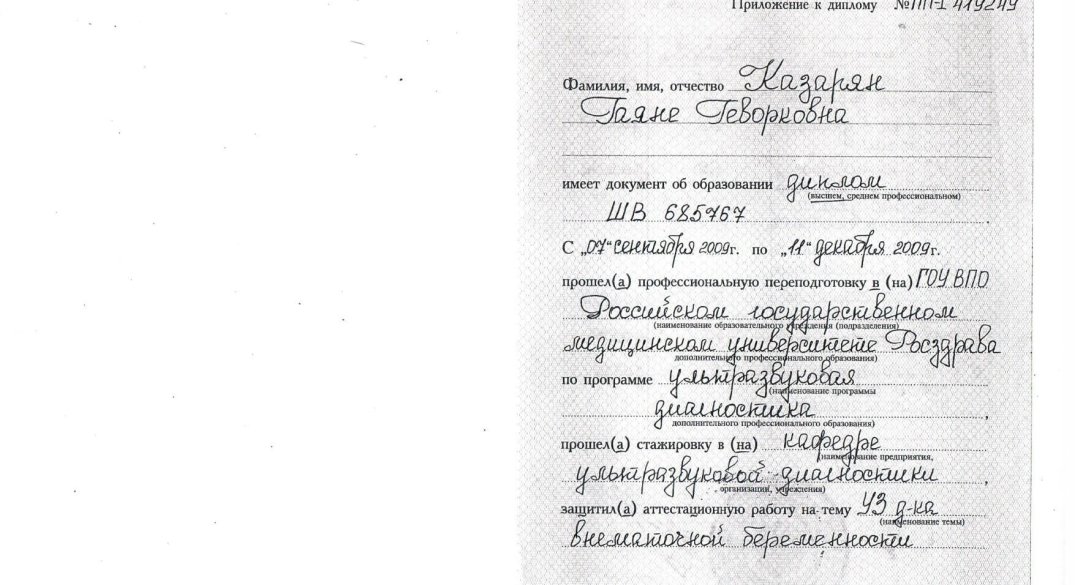 Приложение к диплому №ПП-I 419249
Фамилия, имя, отчество Казарян
Гаяне Геворковна
имеет документ об образовании диплом
(высшем, среднем профессиональном)
ШВ 685767
С „07“ сентября 2009г. по „11“ декабря 2009г.
прошел(а) профессиональную переподготовку в (на) ГОУ ВПО
Российском государственном
(наименование образовательного учреждения (подразделения)
медицинском университете Росздрава
дополнительного профессионального образования)
по программе ультразвуковая
(наименование программы
диагностика,
дополнительного профессионального образования)
прошел(а) стажировку в (на) кафедре
(наименование предприятия,
ультразвуковой диагностики,
организации, учреждения)
защитил(а) аттестационную работу на тему УЗ д-ка
(наименование темы)
внематочной беременности